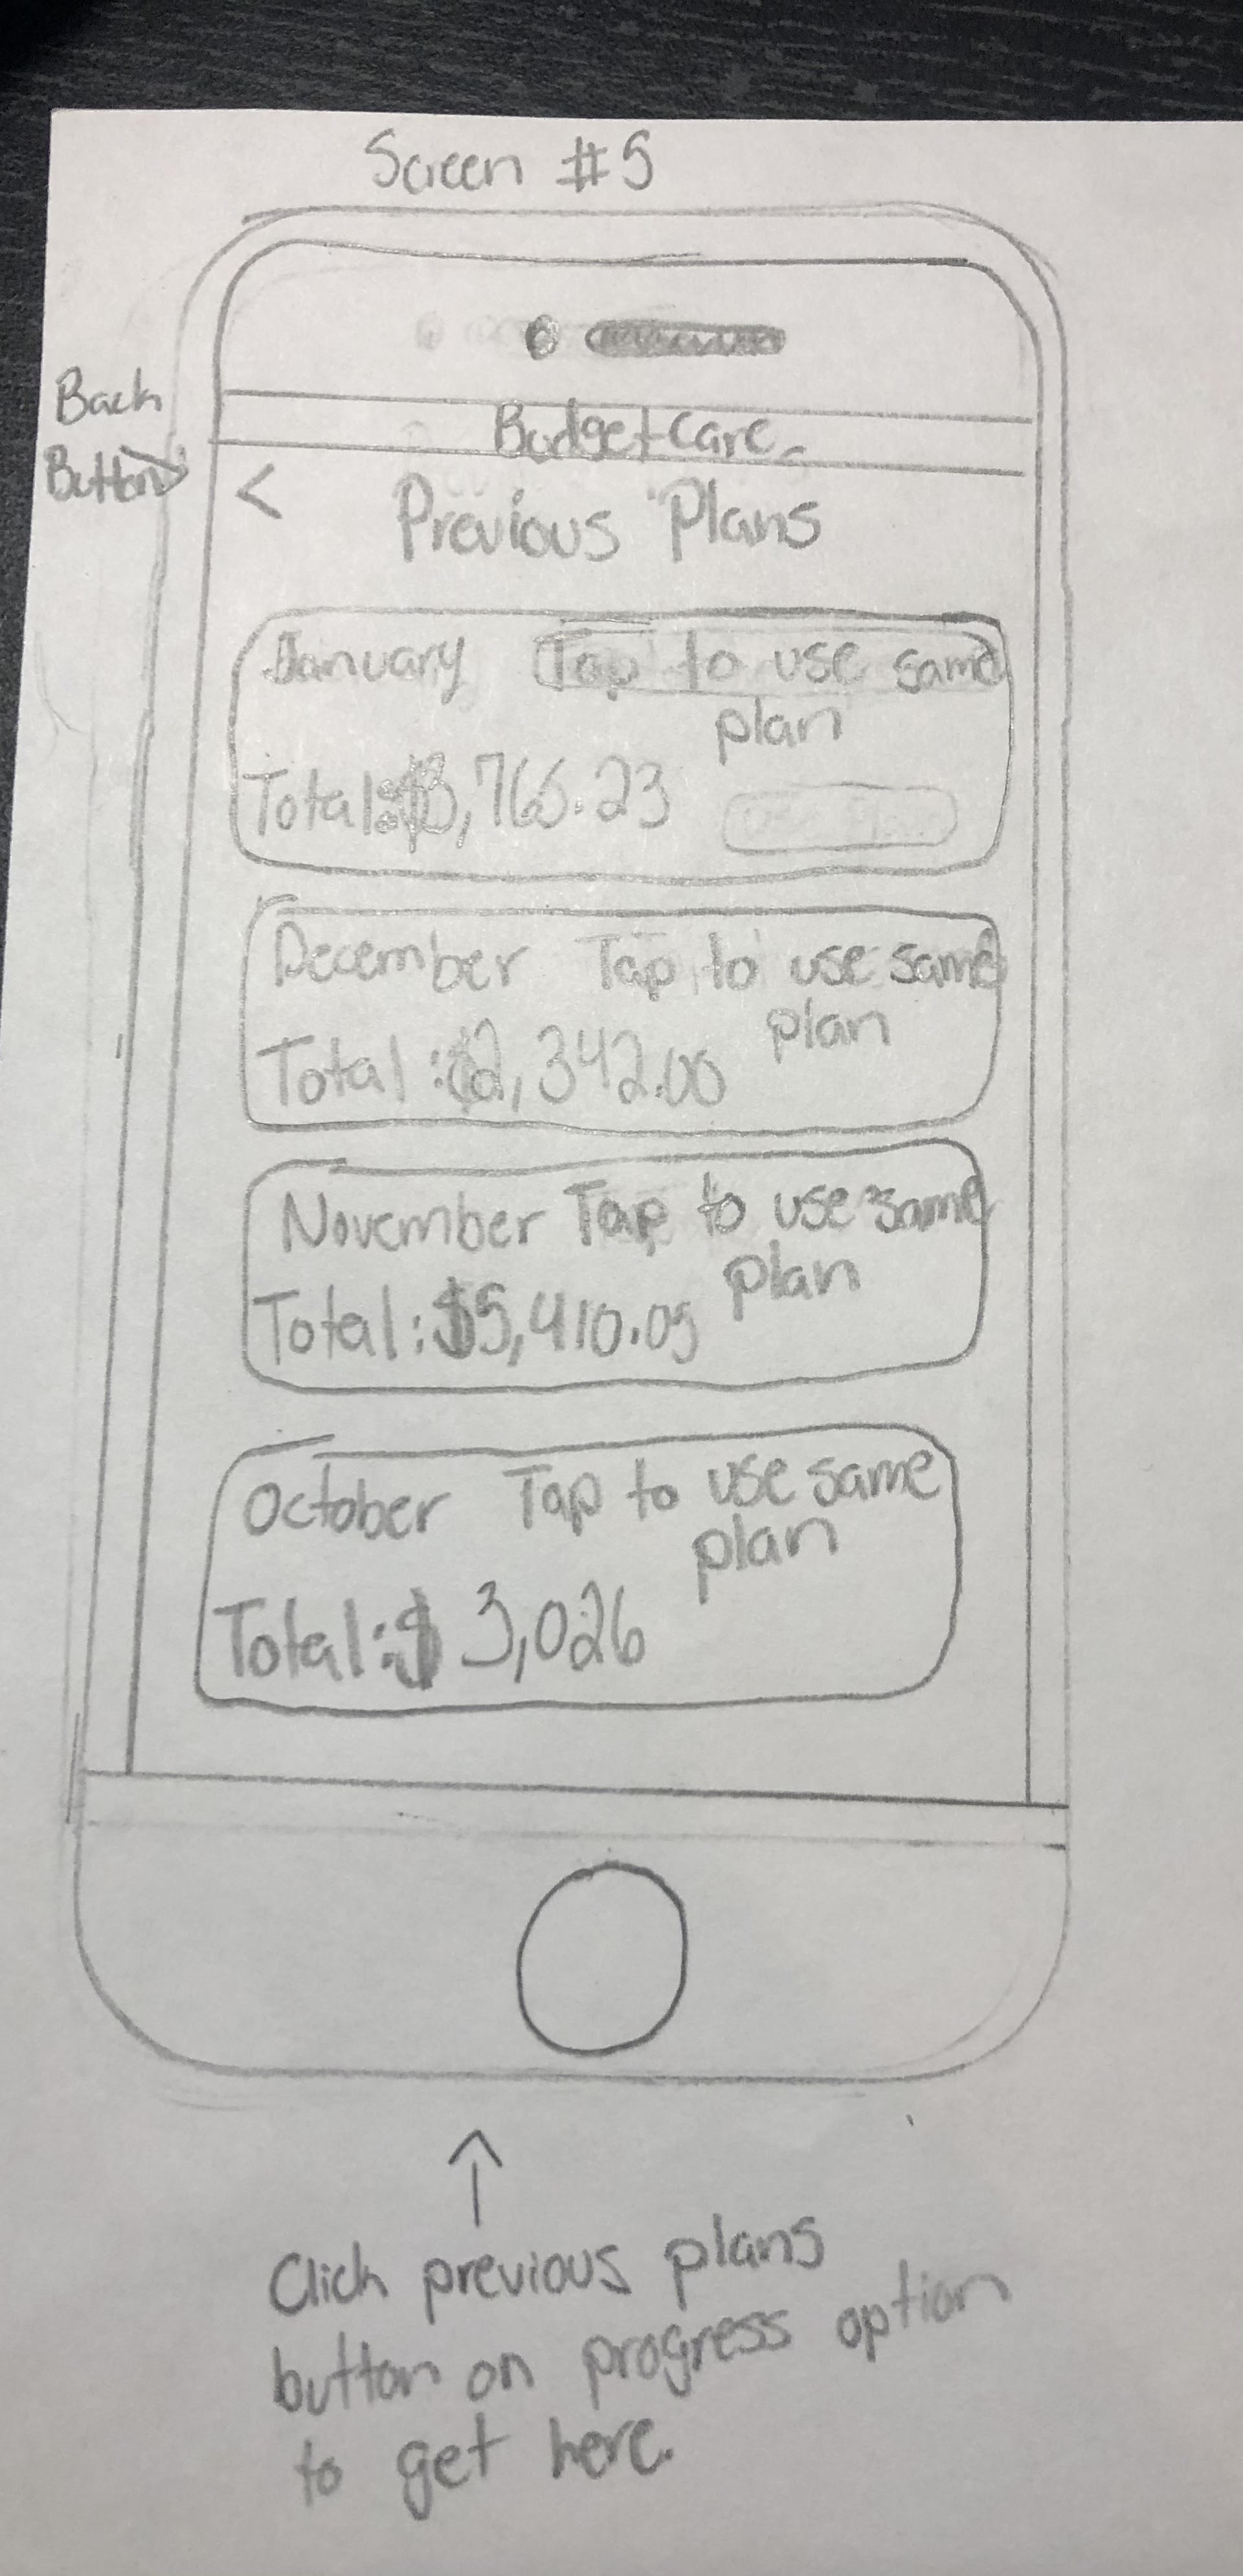 Screen #5
Back
Button
BudgetCare
<
Previous Plans
January Tap to use same
plan
Total:$3,765.23
December Tap to use same
plan
Total:$2,342.00
November Tap to use same
plan
Total:$5,410.05
October Tap to use same
plan
Total:$ 3,026
Click previous plans
button on progress option
to get here.